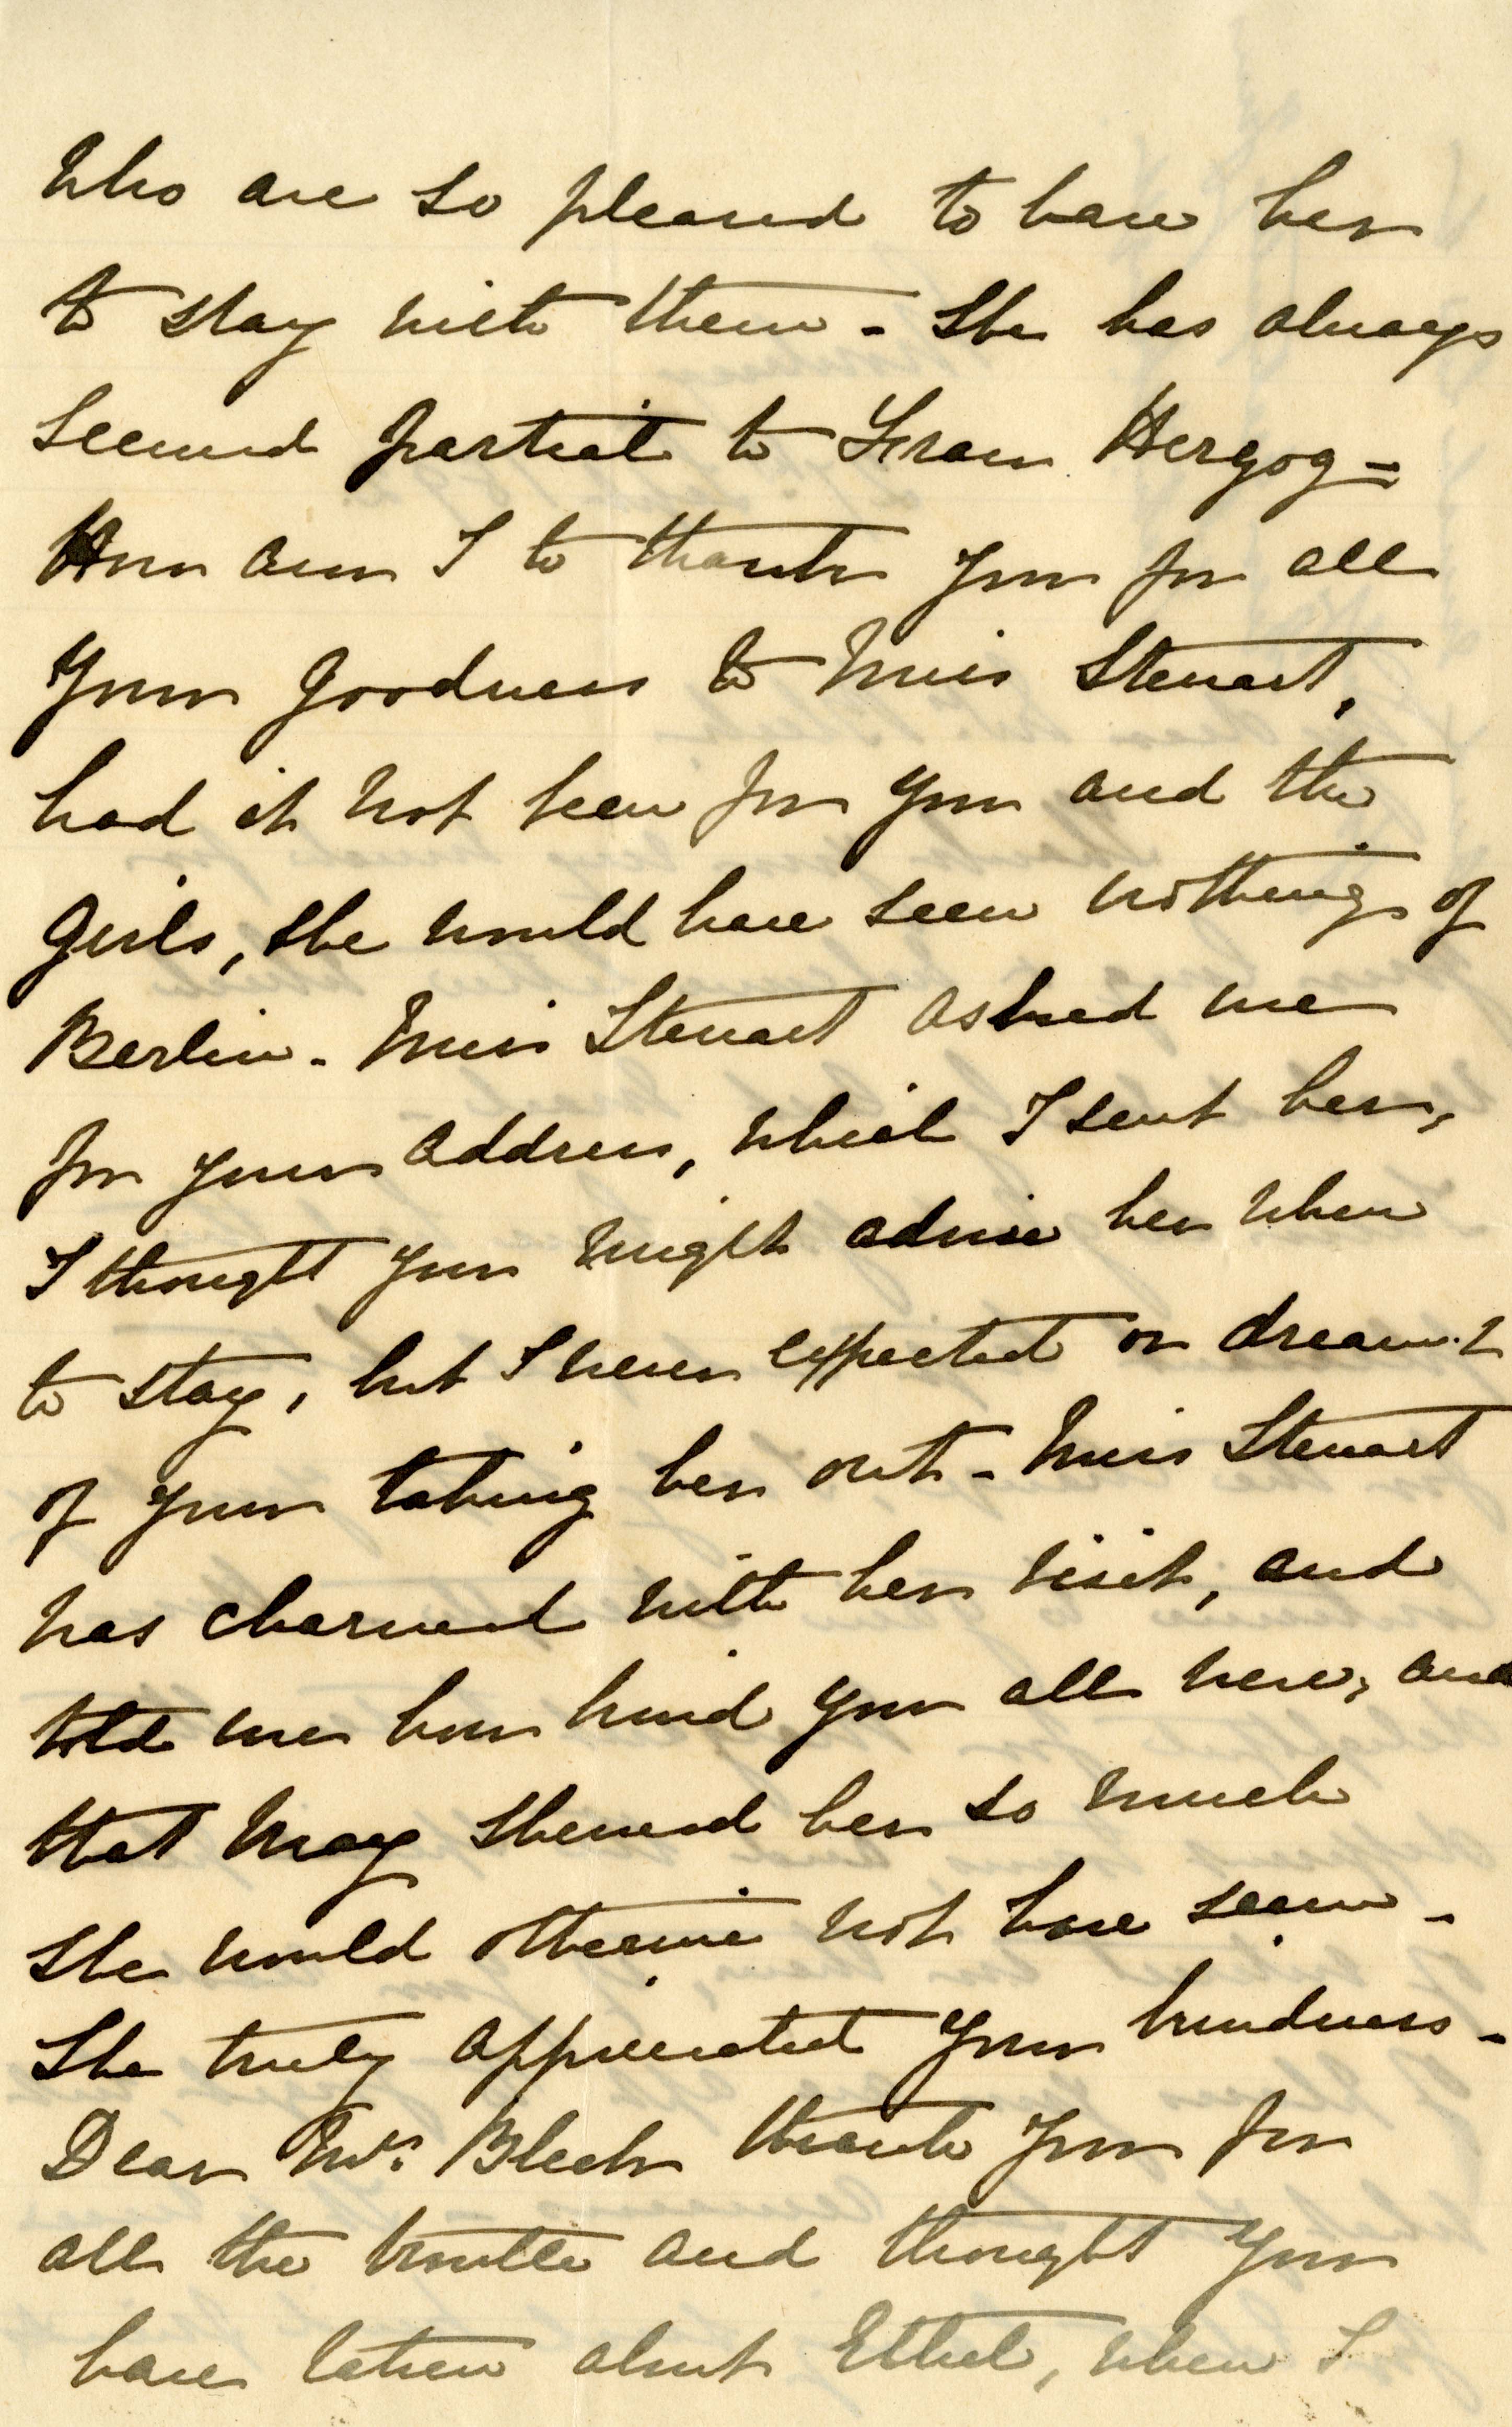 who are so pleased to have her
to stay with them - She has always
seemed partial to Frau Herzog -
How am I to thank you for all
your goodness to Miss Stewart,
had it not been for you and the
girls, she would have seen nothing of
Berlin - Miss Stewart asked me
for your address, which I sent her,
I thought you might advise her where
to stay, but I never expected or dream.t
of your taking her out - Miss Stewart
was charmed with her visit, and
told me how kind you all were, and
that May shewed her so much
she would otherwise not have seen -
She truly appreciated your kindness -
Dear Mrs. Blech thank you for
all the trouble and thought you
have taken about Ethel, when I